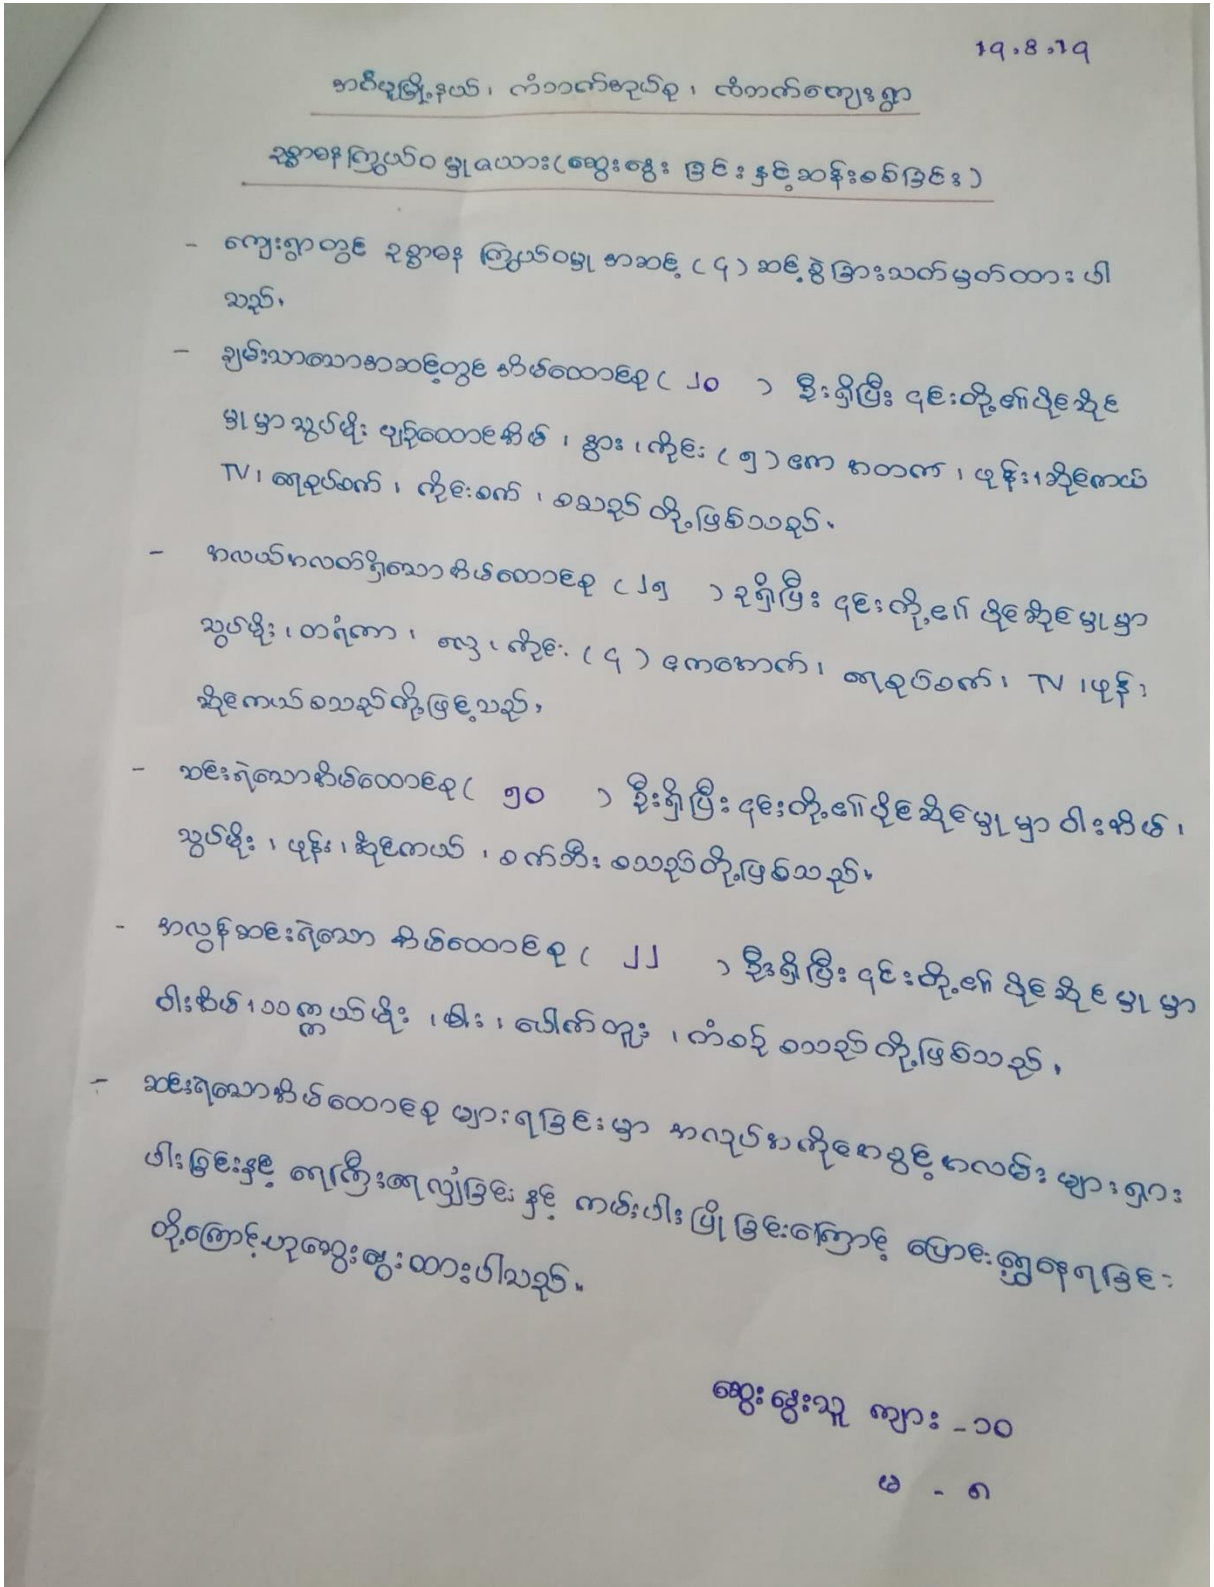 19.8.19
ငပုတောမြို့နယ်၊ ကံဘက်အုပ်စု၊ ကံဘက်ကျေးရွာ
ဥစ္စာဓနကြွယ်ဝမှုဇယား(ဆွေးနွေးခြင်းနှင့်ဆန်းစစ်ခြင်း)
- ကျေးရွာတွင် ဥစ္စာဓန ကြွယ်ဝမှု အဆင့် (၄) ဆင့်ခွဲခြားသတ်မှတ်ထားပါ
သည်။
- ချမ်းသာသောအဆင့်တွင် အိမ်ထောင်စု ( ၂၀ ) ဦးရှိပြီး ၎င်းတို့၏ပိုင်ဆိုင်
မှုမှာ သွပ်မိုး ပျဉ်ထောင်အိမ်၊ နွား၊ ကိုင်း (၅) ဧက အထက်၊ ဖုန်း၊ ဆိုင်ကယ်
TV၊ ရေစုပ်စက်၊ ကိုင်းစက်၊ စသည်တို့ဖြစ်သည်။
- အလယ်အလတ်ရှိသောအိမ်ထောင်စု ( ၂၅ ) ခုရှိပြီး ၎င်းတို့၏ ပိုင်ဆိုင်မှုမှာ
သွပ်မိုး၊ ထရံကာ၊ လှေ၊ ကိုင်း (၄) ဧကအောက်၊ ရေစုပ်စက်၊ TV၊ ဖုန်း၊
ဆိုင်ကယ်စသည်တို့ဖြင့်သည်။
- ဆင်းရဲသောအိမ်ထောင်စု ( ၅၀ ) ဦးရှိပြီး ၎င်းတို့၏ပိုင်ဆိုင်မှုမှာ ဝါးအိမ်၊
သွပ်မိုး၊ ဖုန်း၊ ဆိုင်ကယ်၊ စက်ဘီး စသည်တို့ဖြစ်သည်။
- အလွန်ဆင်းရဲသော အိမ်ထောင်စု ( ၂၂ ) ဦးရှိပြီး ၎င်းတို့၏ ပိုင်ဆိုင်မှုမှာ
ဝါးအိမ်၊ သက္ကယ်မိုး၊ ဓါး၊ ပေါက်တူး၊ ကံစဉ် စသည်တို့ဖြစ်သည်။
- ဆင်းရဲသောအိမ်ထောင်စု များရခြင်းမှာ အလုပ်အကိုင်အခွင့်အလမ်းများရှား
ပါးခြင်းနှင့် ရေကြီးရေလျှံခြင်းနှင့် ကမ်းပါးပြိုခြင်းကြောင့် ပြောင်းရွှေ့နေရခြင်း
တို့ကြောင့်ဟုဆွေးနွေးထားပါသည်။
ဆွေးနွေးသူ ကျား - ၁၀
မ - ၈